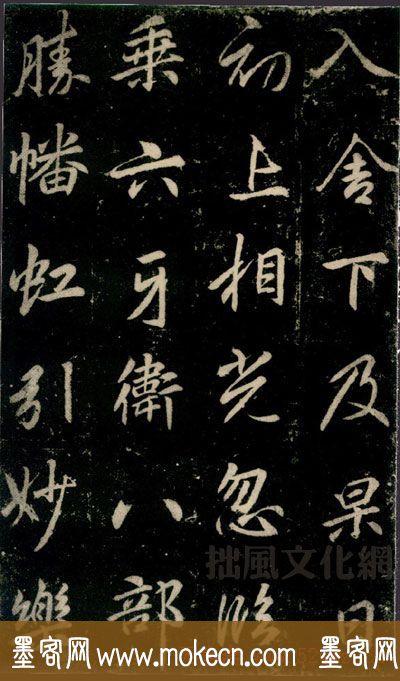 入舍下及杲日
初上相光忽臨
乗六牙衛八部
勝幡虹引妙樂
拙風文化網
墨客网 www.mokecn.com 墨客网